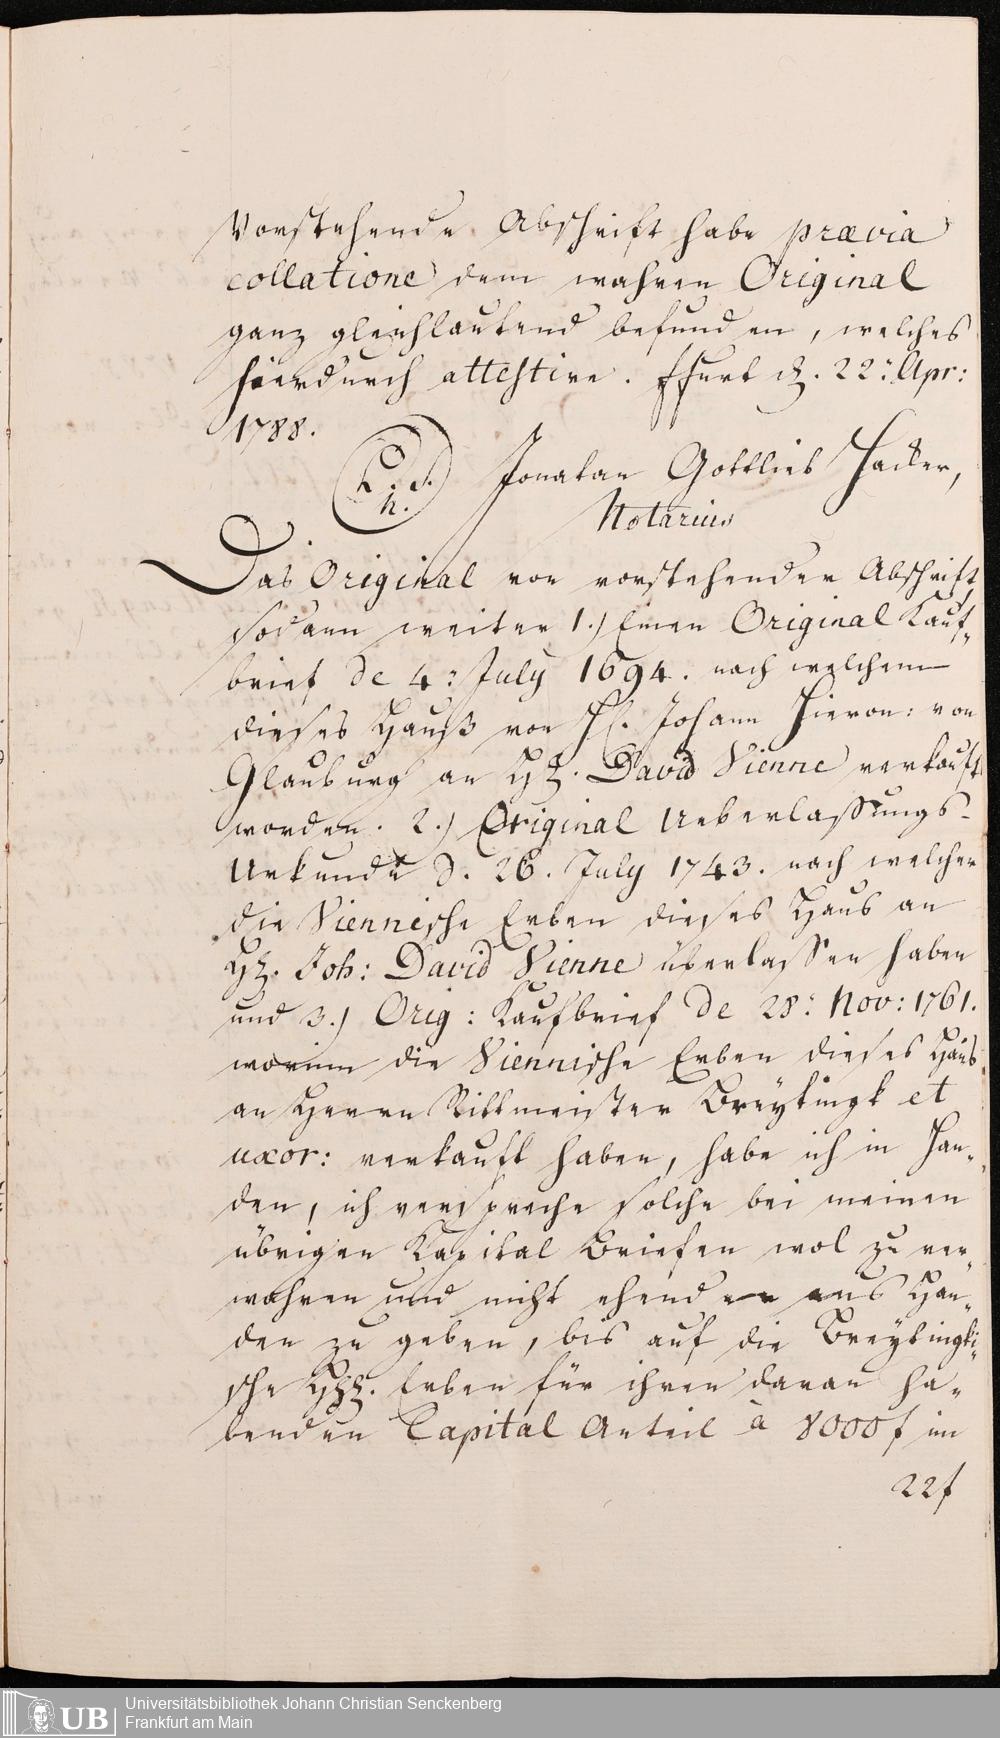 Vorstehende Abschrift habe prævia
collatione dem wahren Original
ganz gleichlautend befunden, welches
hierdurch attestire. ffurt d. 22: Apr:
1788.
L. S. Jonatan Gottlieb Hacker,
n.
Notarius
Das Original von vorstehender Abschrift
sodann weiter 1.) Einen Original Kauf-
brief de 4: July 1694. nach welchem
dieses Hauß von H. Johann Hieron: von
Glauburg an H. David Vienne verkauft
worden. 2.) Original Ueberlassungs-
Urkunde d. 26. July 1743. nach welcher
die Viennische Erben dieses Haus an
H. Joh: David Vienne überlassen haben
und 3.) Orig: Kaufbrief de 28: Nov: 1761.
worinn die Viennische Erben dieses Haus
an Herrn Rittmeister Breytingk et
uxor: verkauft haben, habe ich in Hän-
den, ich verspreche solche bei meinen
übrigen Kapital Briefen wol zu ver-
wahren und nicht ehender aus Hän-
den zu geben, bis auf die Breytingki-
sche HH. Erben für ihren daran ha-
benden Capital Anteil à 8000f im
22f
Universitätsbibliothek Johann Christian Senckenberg
Frankfurt am Main
UB